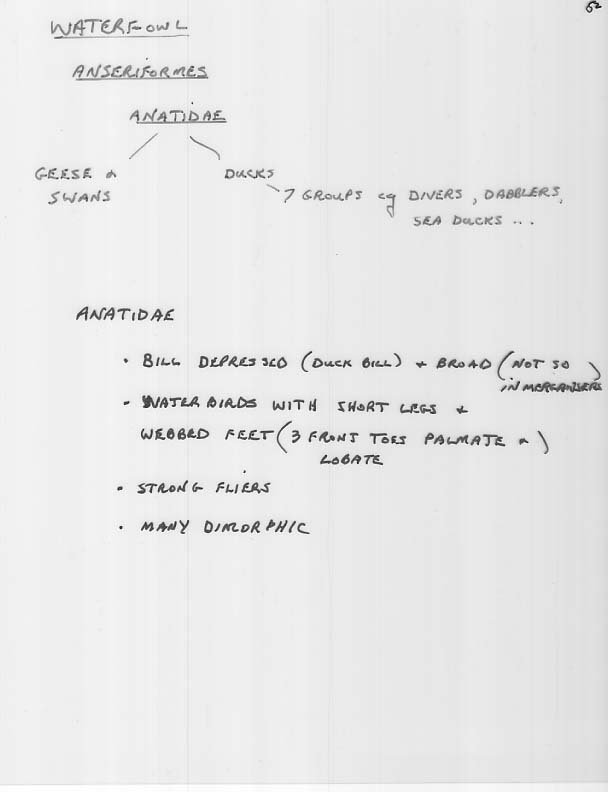 62
WATERFOWL
ANSERIFORMES
ANATIDAE
GEESE &
SWANS
DUCKS
7 GROUPS eg DIVERS, DABBLERS,
SEA DUCKS ...
ANATIDAE
• BILL DEPRESSED (DUCK BILL) & BROAD (NOT SO
IN MERGANSERS)
• WATER BIRDS WITH SHORT LEGS &
WEBBED FEET (3 FRONT TOES PALMATE &
LOBATE)
• STRONG FLIERS
• MANY DIMORPHIC